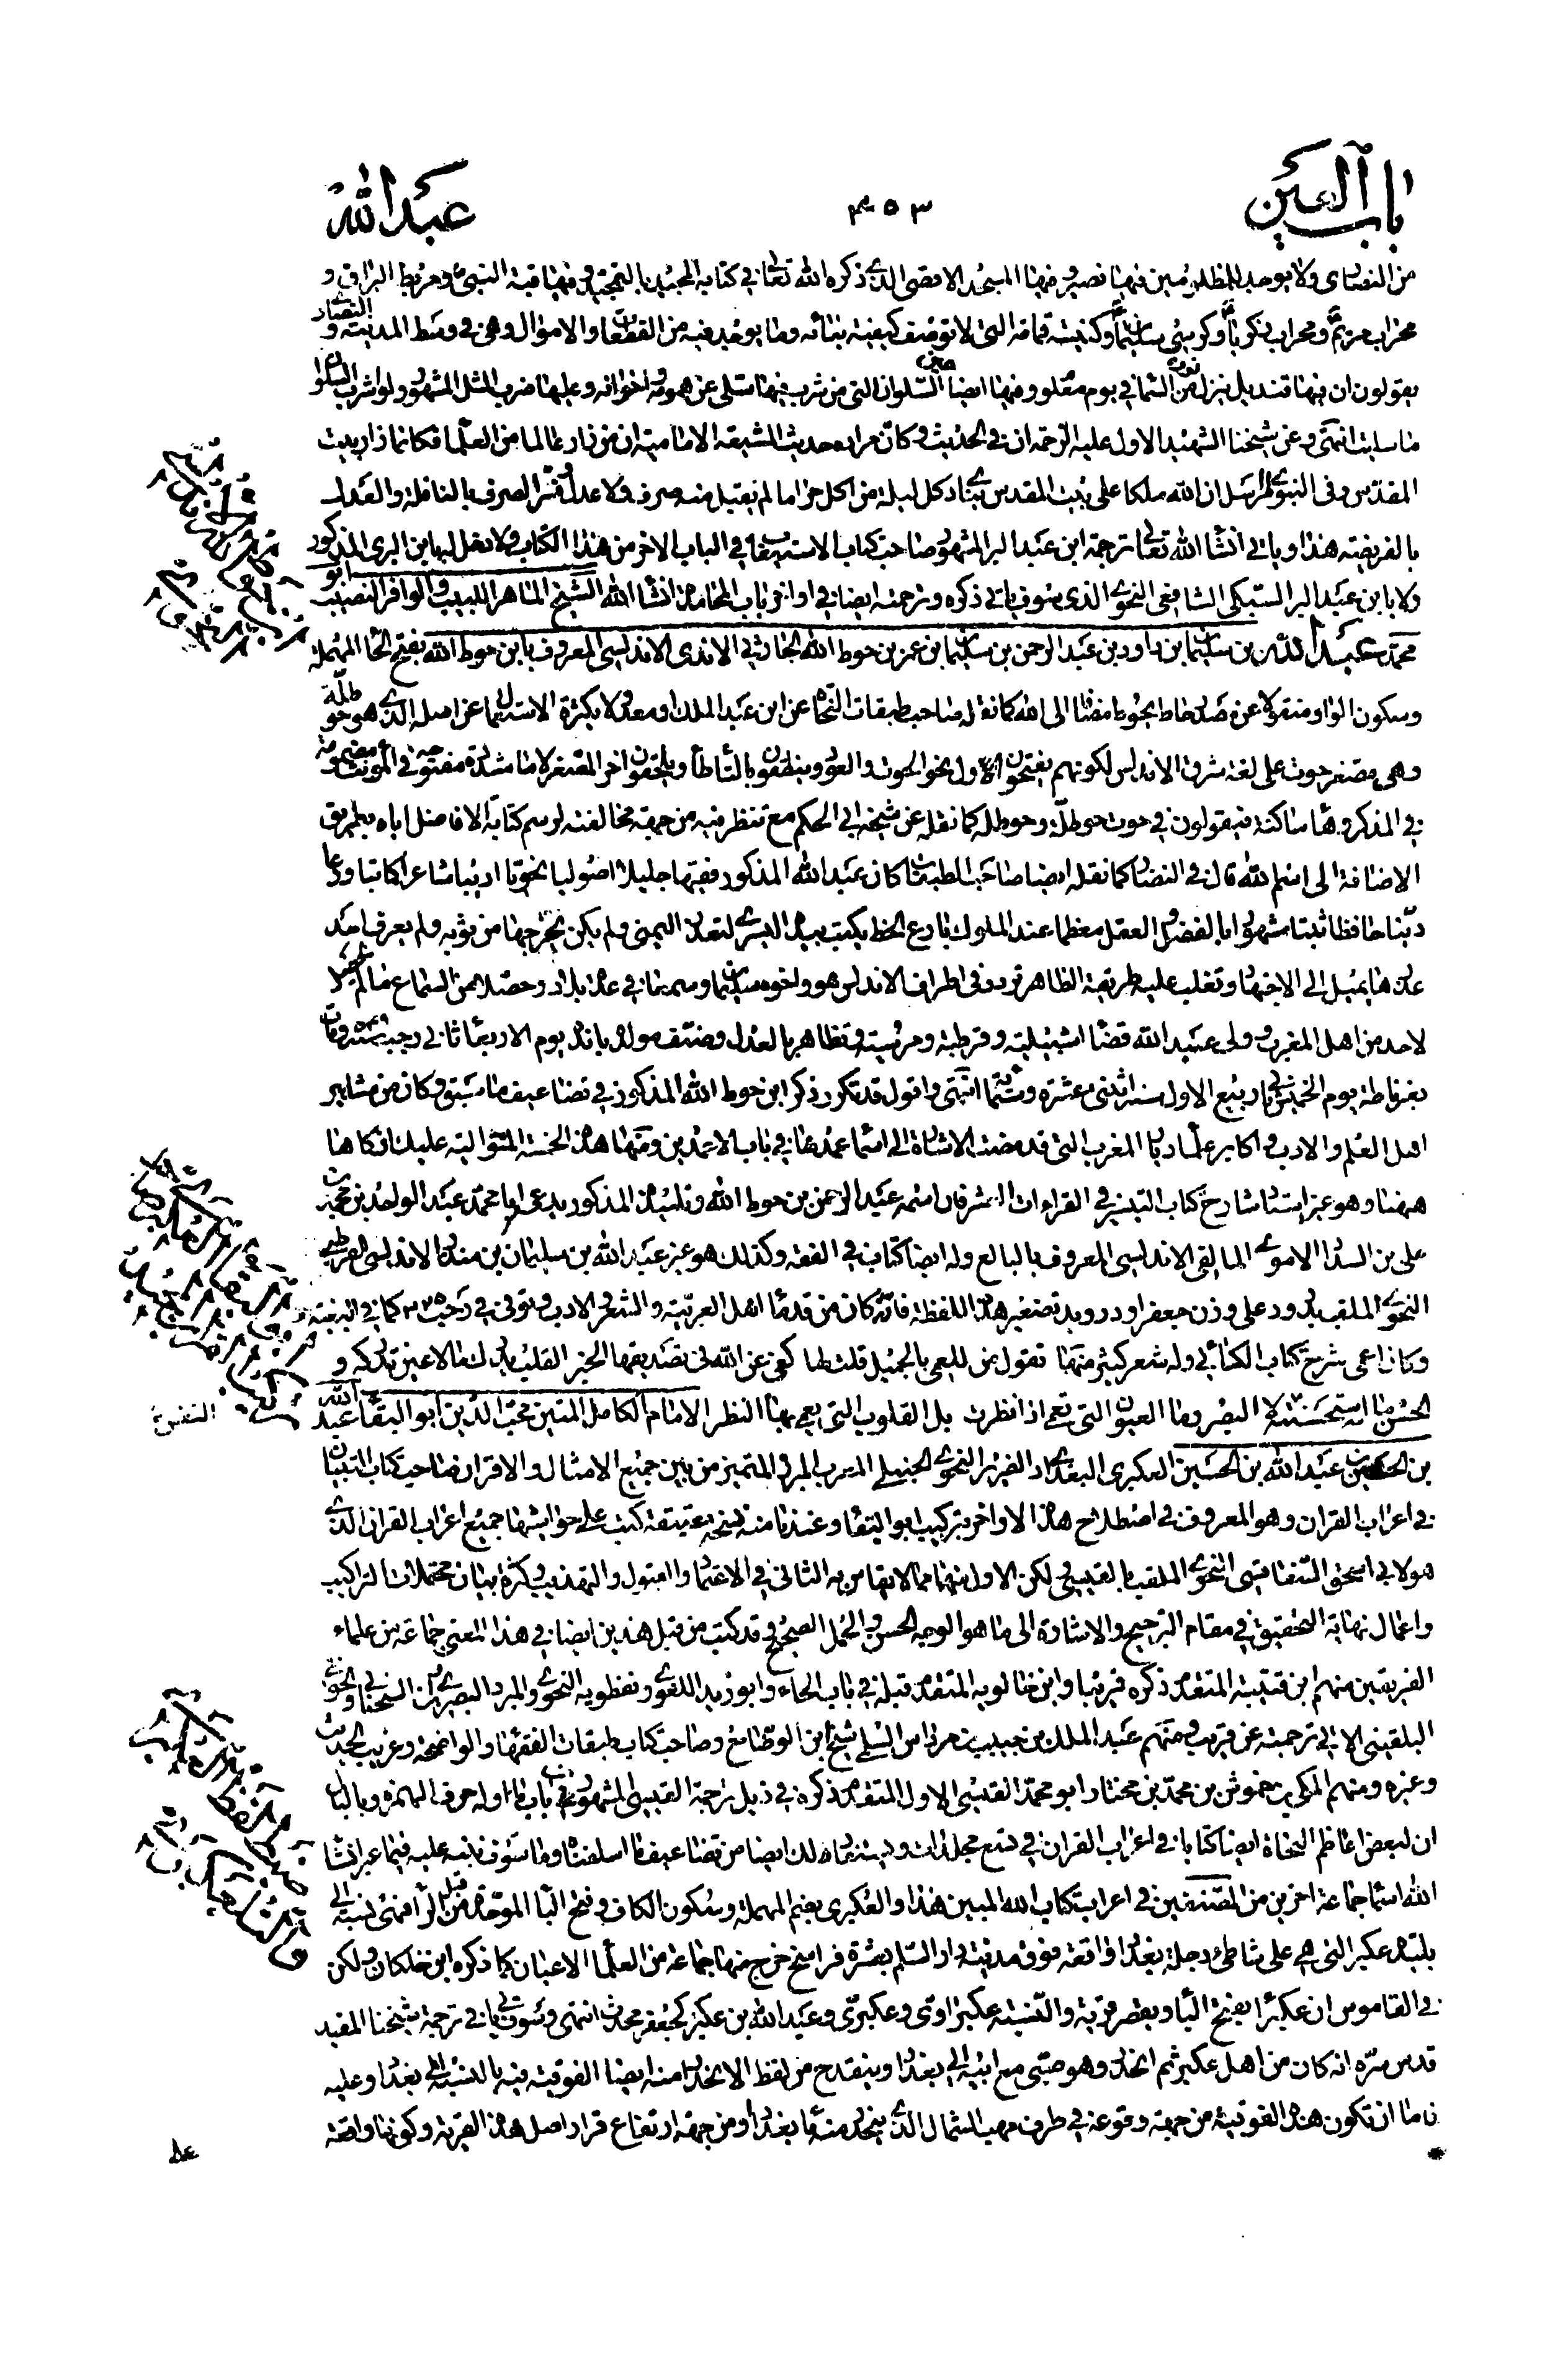 باب العين
٤٥٣
عبدالله
من النصارى ولا يوجد للمظلومين فيها نصير ومنها المسجد الاقصى الذى ذكره الله تعالى في كتابه المجيد بالتمجيد وفيها قبة النبى ومربط البراق و
محراب مريم ومحراب زكريا وكرسى سليمان وكنيسة قمامة التى لا توصف كيفية بنائه وما يوجد فيه من والاموال وهى فى وسط المدينة و النصارى
يقولون ان فيها قنديل ينزل نوره من السماء في يوم معلوم ومنها ايضا عين السلوان التى من شرب منها سلى عن همومه واخوانه وعليها ضرب المثل المشهور ولو اشرب السلوان
ما سليت انتهى وعن شيخنا الشهيد الاول عليه الرحمة ان في الحديث وكان مراده حديث الشيعة الامامية ان من زار عالما من العلماء فكانما زار بيت
المقدس وفى النبوى المرسل ان الله ملكا على بيت المقدس ينادى كل ليلة من اكل حراما لم يقبل منه صرف ولا عدل وفسر الصرف بالنافلة والعدل
بالفريضة هذا وياتى انشاء الله تعالى ترجمة ابن عبد البر المشهور صاحب كتاب الاستيعاب في الباب الاخر من هذا الكتاب ولا تغفل ابن البرى المذكور
ولا بابن عبد البر السبكى الشافعى النحوى الذى سوف ياتى ذكره وترجمته ايضا في اواخر باب المحامدة انشاء الله الشيخ الماهر اللبيب والوافر النصيب ابو
محمد عبد الله بن سليمان بن داود بن عبد الرحمن بن سليمان بن عمر بن حوط الله الحارثى الاندى الاندلسى المعروف بابن حوط الله بفتح الحاء المهملة
وسكون الواو منقولا عن مصدر حاط يحوط مضافا الى الله كما نقله صاحب طبقات النحاة عن ابن عبد الملك او معدولا بكثرة الاستعمال عن اصله الذى هو حوطله
وهى مصغر حوت على لغة شرق الاندلس لكونهم يفتحون اول نحو الحوت والعود وينطقون بالتاء طاء ويلحقون اخر المصغر لاما مشددة مفتوحة في المؤنث مضمومة
في المذكر وهاء ساكنة فيقولون في حوت حوطلة وحوطله كما نقله عن شيخه ابي الحكم مع تنظر فيه من جهة مخالفته لرسم كتابة الافاضل اياه بطريق
الاضافة الى اسم الله قال في النضار كما نقله ايضا صاحب الطبقات كان عبد الله المذكور فقيها جليلا اصوليا نحويا اديبا شاعرا كاتبا ورعا
دينا حافظا ثبتا مشهورا بالفضل والعقل معظما عند الملوك بارع الخط يكتب بيده اليسرى لتعذر اليمنى ولم يكن يخرجها من ثوبه ولم يعرف احد
عذرها يميل الى الاجتهاد وتغلب عليه طريقة الظاهر تردد فى اطراف الاندلس هو واخوه سليمان وسمعا في عدة بلاد وحصل من السماع ما لم يحصل
لاحد من اهل المغرب ولى عبد الله قضاء اشبيلية وقرطبة ومرسية وتظاهر بالعدل وصنف مولده باندة يوم الاربعاء ثانى رجب سنة ٥٤٩ ومات
بغرناطة يوم الخميس ثانى ربيع الاول سنة اثنتى عشرة وستمائة انتهى واقول قد تكرر ذكر ابن حوط الله المذكور في تضاعيف ما سبق وكان من مشاهير
اهل العلم والادب واكابر علماء ديار المغرب التى قد مضت الاشارة الى اسماء عمدها في باب الاحمدين ومنها هذه الخمسة المتوالية عليك ذكراها
هيهنا وهو غير استاد شارح كتاب التيسير في القراءات العشر فان اسمه عبد الرحمن بن حوط الله وتلميذه المذكور يدعى ابا محمد عبد الواحد بن محمد بن
على بن السداد الاموى المالقى الاندلسى المعروف بالبايع وله ايضا كتاب في الفقه وكذلك هو غير عبد الله بن سليمان بن منذر الاندلسى القرطبى
النحوى الملقب بدرود على وزن جعفر او دريود بتصغير هذه اللفظة فانه كان من قدماء اهل العربية والشعر والادب وتوفى في رجب ٣٢٥ كما في البغية
وكان اعمى شرح كتاب الكسائى وله شعر كثير منها تقول من للعمى بالجميل قلت لها كفى عن الله في تصديقها الخبر القلب يدرك ما لا عين تدركه و
الحسن ما استحسنته لا البصر وما العيون التى تعمى اذا نظرت بل القلوب التى يعمى بها النظر الامام الكامل المتين محب الدين ابو البقاء عبد الله
بن الحسين بن عبد الله بن الحسين العكبرى البغدادى الضرير النحوى الحنبلى المعرب المبرز المتميز من بين جميع الامثال والاقران صاحب كتاب التبيان
في اعراب القران وهو المعروف في اصطلاح هذا الاواخر بتركيب ابو البقاء وعندنا منه نسخة عتيقة كتبت على حواشيها جميع اعراب القران الذى
هو لابي اسحق السفاقسى النحوى الملقب لكن الاول منهما مما لا يقاس به الثانى في الاعتماد والقبول والتهذيب وكثرة بيان محتملات التراكيب
واعمال نهاية التحقيق في مقام الترجيح والاشارة الى ما هو الوجه الحسن والمحمل الصحيح وقد كتب من قبل هذين ايضا في هذا المعنى جماعة من علماء
الفريقين منهم ابن قتيبة المتقدم ذكره قريبا وابن خالويه المتقدم قبله في باب الحاء وابو زيد اللغوى ونفطويه النحوى والمبرد البصرى السجستانى والحوفى
البلقينى الاتى ترجمته عن قريب ومنهم عبد الملك بن حبيب بن مرداس السلمى شيخ ابن الوضاح وصاحب كتاب طبقات الفقهاء والواضحة وغريب الحديث
وغيره ومنهم المكى بن حموش بن محمد بن مختار ابو محمد القيسى الاول المتقدم ذكره في ذيل ترجمة القيسى المشهور في باب ما اوله حرف الهمزة وبالبال
ان لبعض اعاظم النحاة ايضا كتابا في اعراب القران في تسع مجلدات ويستفاد لك ايضا من تضاعيف ما اسلفناه وما سوف ننبه عليه فيما غبر انشاء
الله اسماء جماعة اخرين من المصنفين في اعراب كتاب الله المبين هذا والعكبرى بضم المهملة وسكون الكاف وفتح الباء الموحدة قبل الراء فهى نسبة الى
بليدة عكبر التى هى على شاطئ دجلة بغداد واقعة فوق مدينة دار السلم بعشرة فراسخ خرج منها جماعة من العلماء الاعيان كما ذكره ابن خلكان ولكن
في القاموس ان عكبرا بفتح الباء ويقصر قرية والنسبة عكبراوى وعكبرى وعبد الله بن عكبر كجعفر محدث انتهى وسوف ياتى في ترجمة شيخنا المفيد
قدس سره انه كان من اهل عكبر ثم انحدر وهو صبى مع ابيه الى بغداد وينقدح من لفظ الانحدار منه ايضا الفوقية فيه بالنسبة الى بغداد وعليه
فاما ان تكون هذه الفوقية من جهة وقوعه في طرف مهب الشمال الذى ينحدر منه ماء بغداد او من جهة ارتفاع قرار اصل هذه القرية وكونها واقعة
على